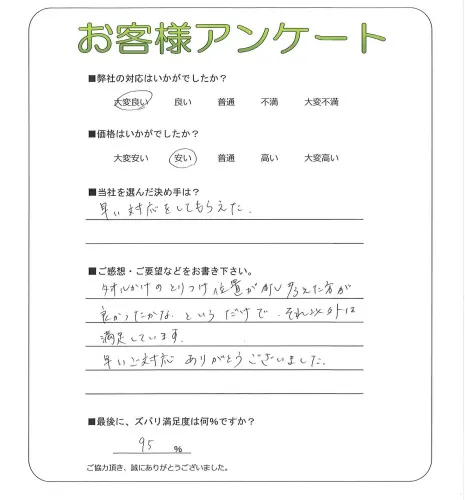 お客様アンケート
■弊社の対応はいかがでしたか？
大変良い 良い 普通 不満 大変不満
■価格はいかがでしたか？
大変安い 安い 普通 高い 大変高い
■当社を選んだ決め手は？
早い対応をしてもらえた.
■ご感想・ご要望などをお書き下さい。
タオルかけのとりつけ位置が少し考えた方が
良かったかな、というだけで、それ以外は
満足しています.
早いご対応 ありがとうございました.
■最後に、ズバリ満足度は何％ですか？
95 ％
ご協力頂き、誠にありがとうございました。